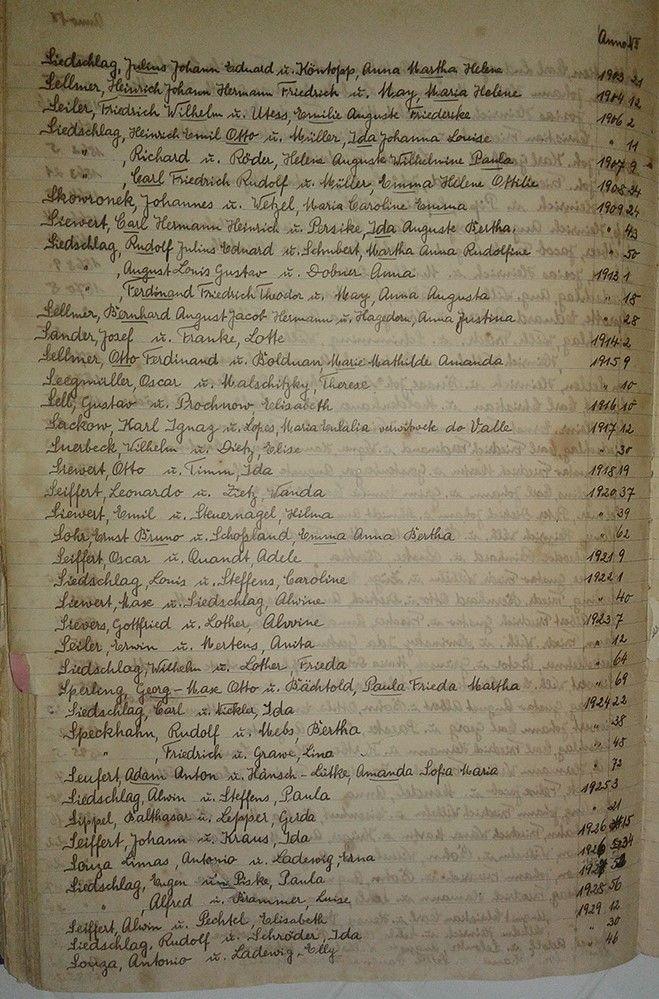 Anno №
Siedschlag, Julius Johann Eduard u. Köntopp, Anna Martha Helene 1903 21
Sellmer, Heinrich Johann Hermann Friedrich u. May, Maria Helene 1904 12
Seiler, Friedrich Wilhelm u. Utess, Emilie Auguste Friederike 1906 2
Siedschlag, Heinrich Emil Otto u. Müller, Ida Johanna Louise " 11
" , Richard u. Röder, Helene Auguste Wilhelmine Paula 1907 9
" , Carl Friedrich Rudolf u. Müller, Emma Helene Ottilie 1908 24
Skowronek, Johannes u. Wetzel, Maria Caroline Emma 1909 24
Siewert, Carl Hermann Heinrich u. Persike, Ida Auguste Bertha " 43
Siedschlag, Rudolf Julius Eduard u. Schubert, Martha Anna Rudolfine " 50
" , August Louis Gustav u. Dobner Anna 1913 1
" , Ferdinand Friedrich Theodor u. May, Anna Augusta " 18
Sellmer, Bernhard August Jacob Hermann u. Hagedorn, Anna Justina " 28
Sander, Josef u. Franke, Lotte 1914 2
Sellmer, Otto Ferdinand u. Bolduan, Marie Mathilde Amanda 1915 9
Seegmüller, Oscar u. Malschitzky, Therese " 10
Sell, Gustav u. Prochnow, Elisabeth 1916 10
Sackow, Karl Ignaz u. Lopes, Maria Eulalia verwitwete do Valle 1917 12
Suerbeck, Wilhelm u. Dietz, Elise " 30
Siewert, Otto u. Timm, Ida 1918 19
Seiffert, Leonardo u. Zietz, Wanda 1920 37
Siewert, Emil u. Steuernagel, Hilma " 39
Sohr, Ernst Bruno u. Schossland, Emma Anna Bertha " 62
Seiffert, Oscar u. Quandt Adele 1921 9
Siedschlag, Louis u. Steffens, Caroline 1922 1
Siewert, Maxe u. Siedschlag, Alwine " 40
Sievers, Gottfried u. Lother, Alwine 1923 7
Seiler, Erwin u. Mertens, Anita " 12
Siedschlag, Wilhelm u. Lother, Frieda " 64
Sperling, Georg-Maxe Otto u. Bächtold, Paula Frieda Martha " 69
Siedschlag, Carl u. Ida 1924 22
Speckhahn, Rudolf u. Mebs, Bertha " 38
" , Friedrich u. Grawe, Lina " 48
Seufert, Adam Anton u. Hänsch-Lütke, Amanda Sofia Maria " 73
Siedschlag, Alwin u. Steffens, Paula 1925 3
Sippel, Balthasar u. Lepper, Gerda " 21
Seiffert, Johann u. Kraus, Ida 1926 15
Souza Limas, Antonio u. Ladewig, Erna 1926 34
Siedschlag, Eugen u. Piske, Paula
" , Alfred u. Brammer, Luise 1928 56
Seiffert, Alwin u. Pechtel Elisabeth 1929 12
Siedschlag, Rudolf u. Schröder, Ida " 30
Souza, Antonio u. Ladewig, Elly " 46